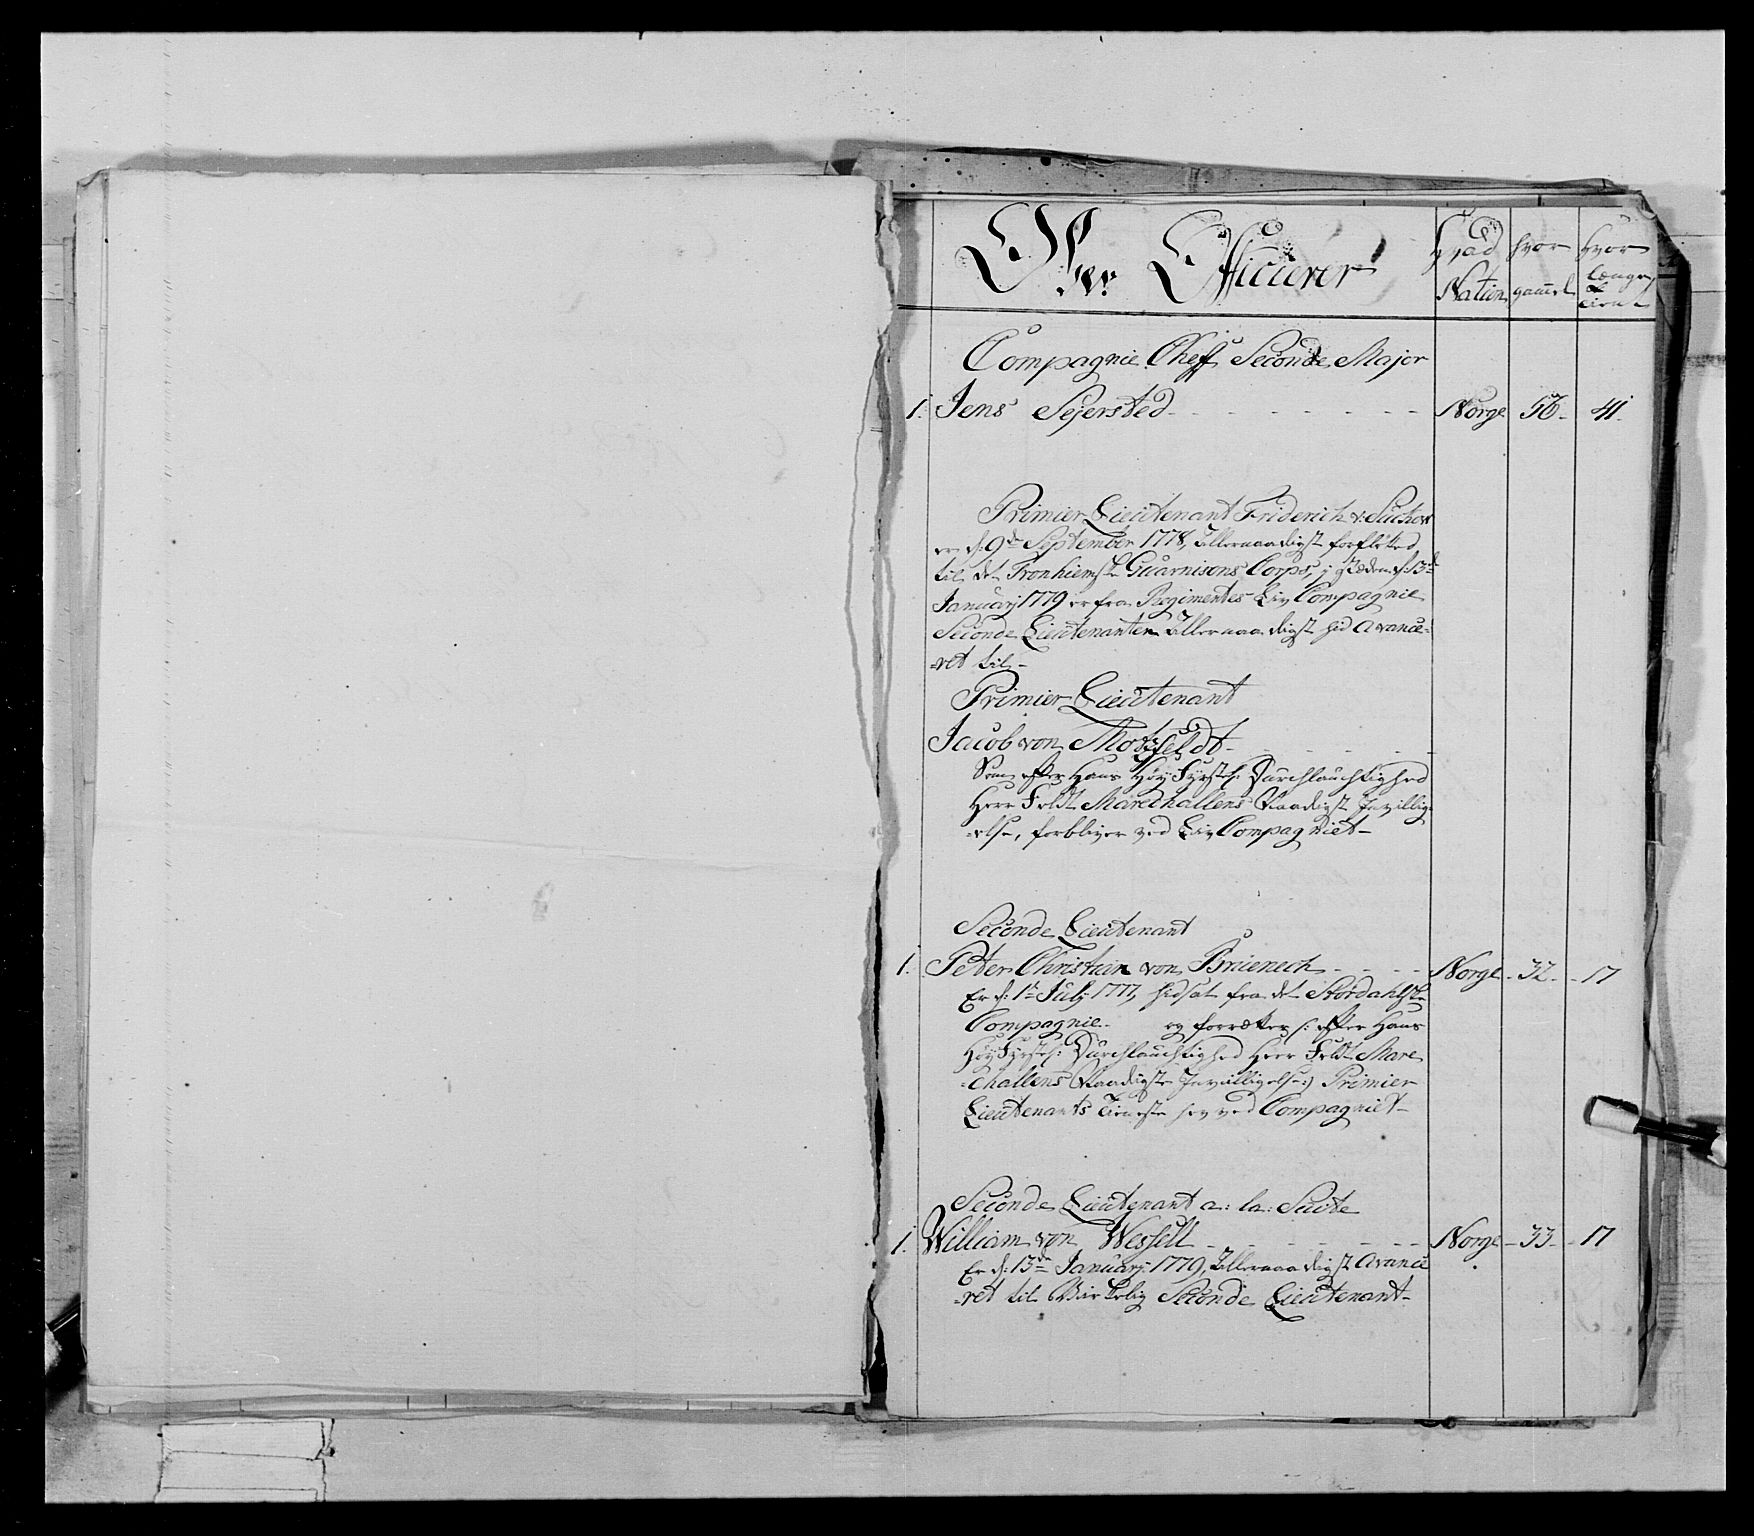 Ober Officierer
Hvad Nation
hvor gaml
Hvor længe tient
Compagnie Cheff Seconde Major
1. Jens Sejersted Norge 56 41
Primier Lieutenant Friderich v: Suckow
er d: 9de September 1778, Allernaadigst forflÿtted
til det Tronhiemske Guarnisons Corps, i Stæden d: 13de
Januarj 1779 er fra Regimentes Liv Compagnie
Seconde Lieutenanten Allernaadigst hid Avance-
-ret til
Primier Lieutenant
Jacob von Motzfeldt
Som efter Hans Høy Fyrstel: Durchlauchtighed
Herr Feldt Marechallens Naadigst Invillig-
-else, forbliver ved Liv Compagniet
Seconde Lieutenant
1. Peter Christian von Brienech Norge 32 17
Er d: 1te Julj 1777, hidsat fra det Stordahlske
Compagnie og forretter /: efter Hans
Høy Fyrstel: Durchlauchtighed Herr Feldt Mare
-challens Naadigste Invilligelse :/ Primier
Lieutenants Tieneste her ved Compagniet
Seconde Lieutenant a: la: Suite
1. William von Wessell Norge 33 17
Er d: 13de Januarj 1779, Allernaadigst Avance
-ret til Virkelig Seconde Lieutenant